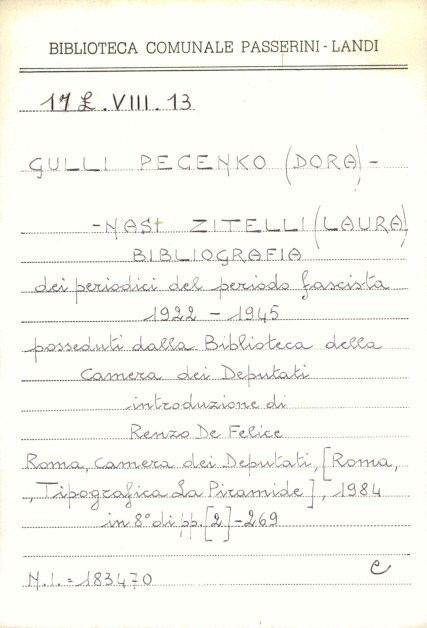 BIBLIOTECA COMUNALE PASSERINI - LANDI
17 L . VIII . 13
GULLI PECENKO (DORA) -
- NASI ZITELLI (LAURA)
BIBLIOGRAFIA
dei periodici del periodo fascista
1922 - 1945
posseduti dalla Biblioteca della
Camera dei Deputati
introduzione di
Renzo De Felice
Roma, Camera dei Deputati, [Roma,
, Tipografica La Piramide], 1984
in 8° di pp. [2] - 269
N.I. = 183470
C